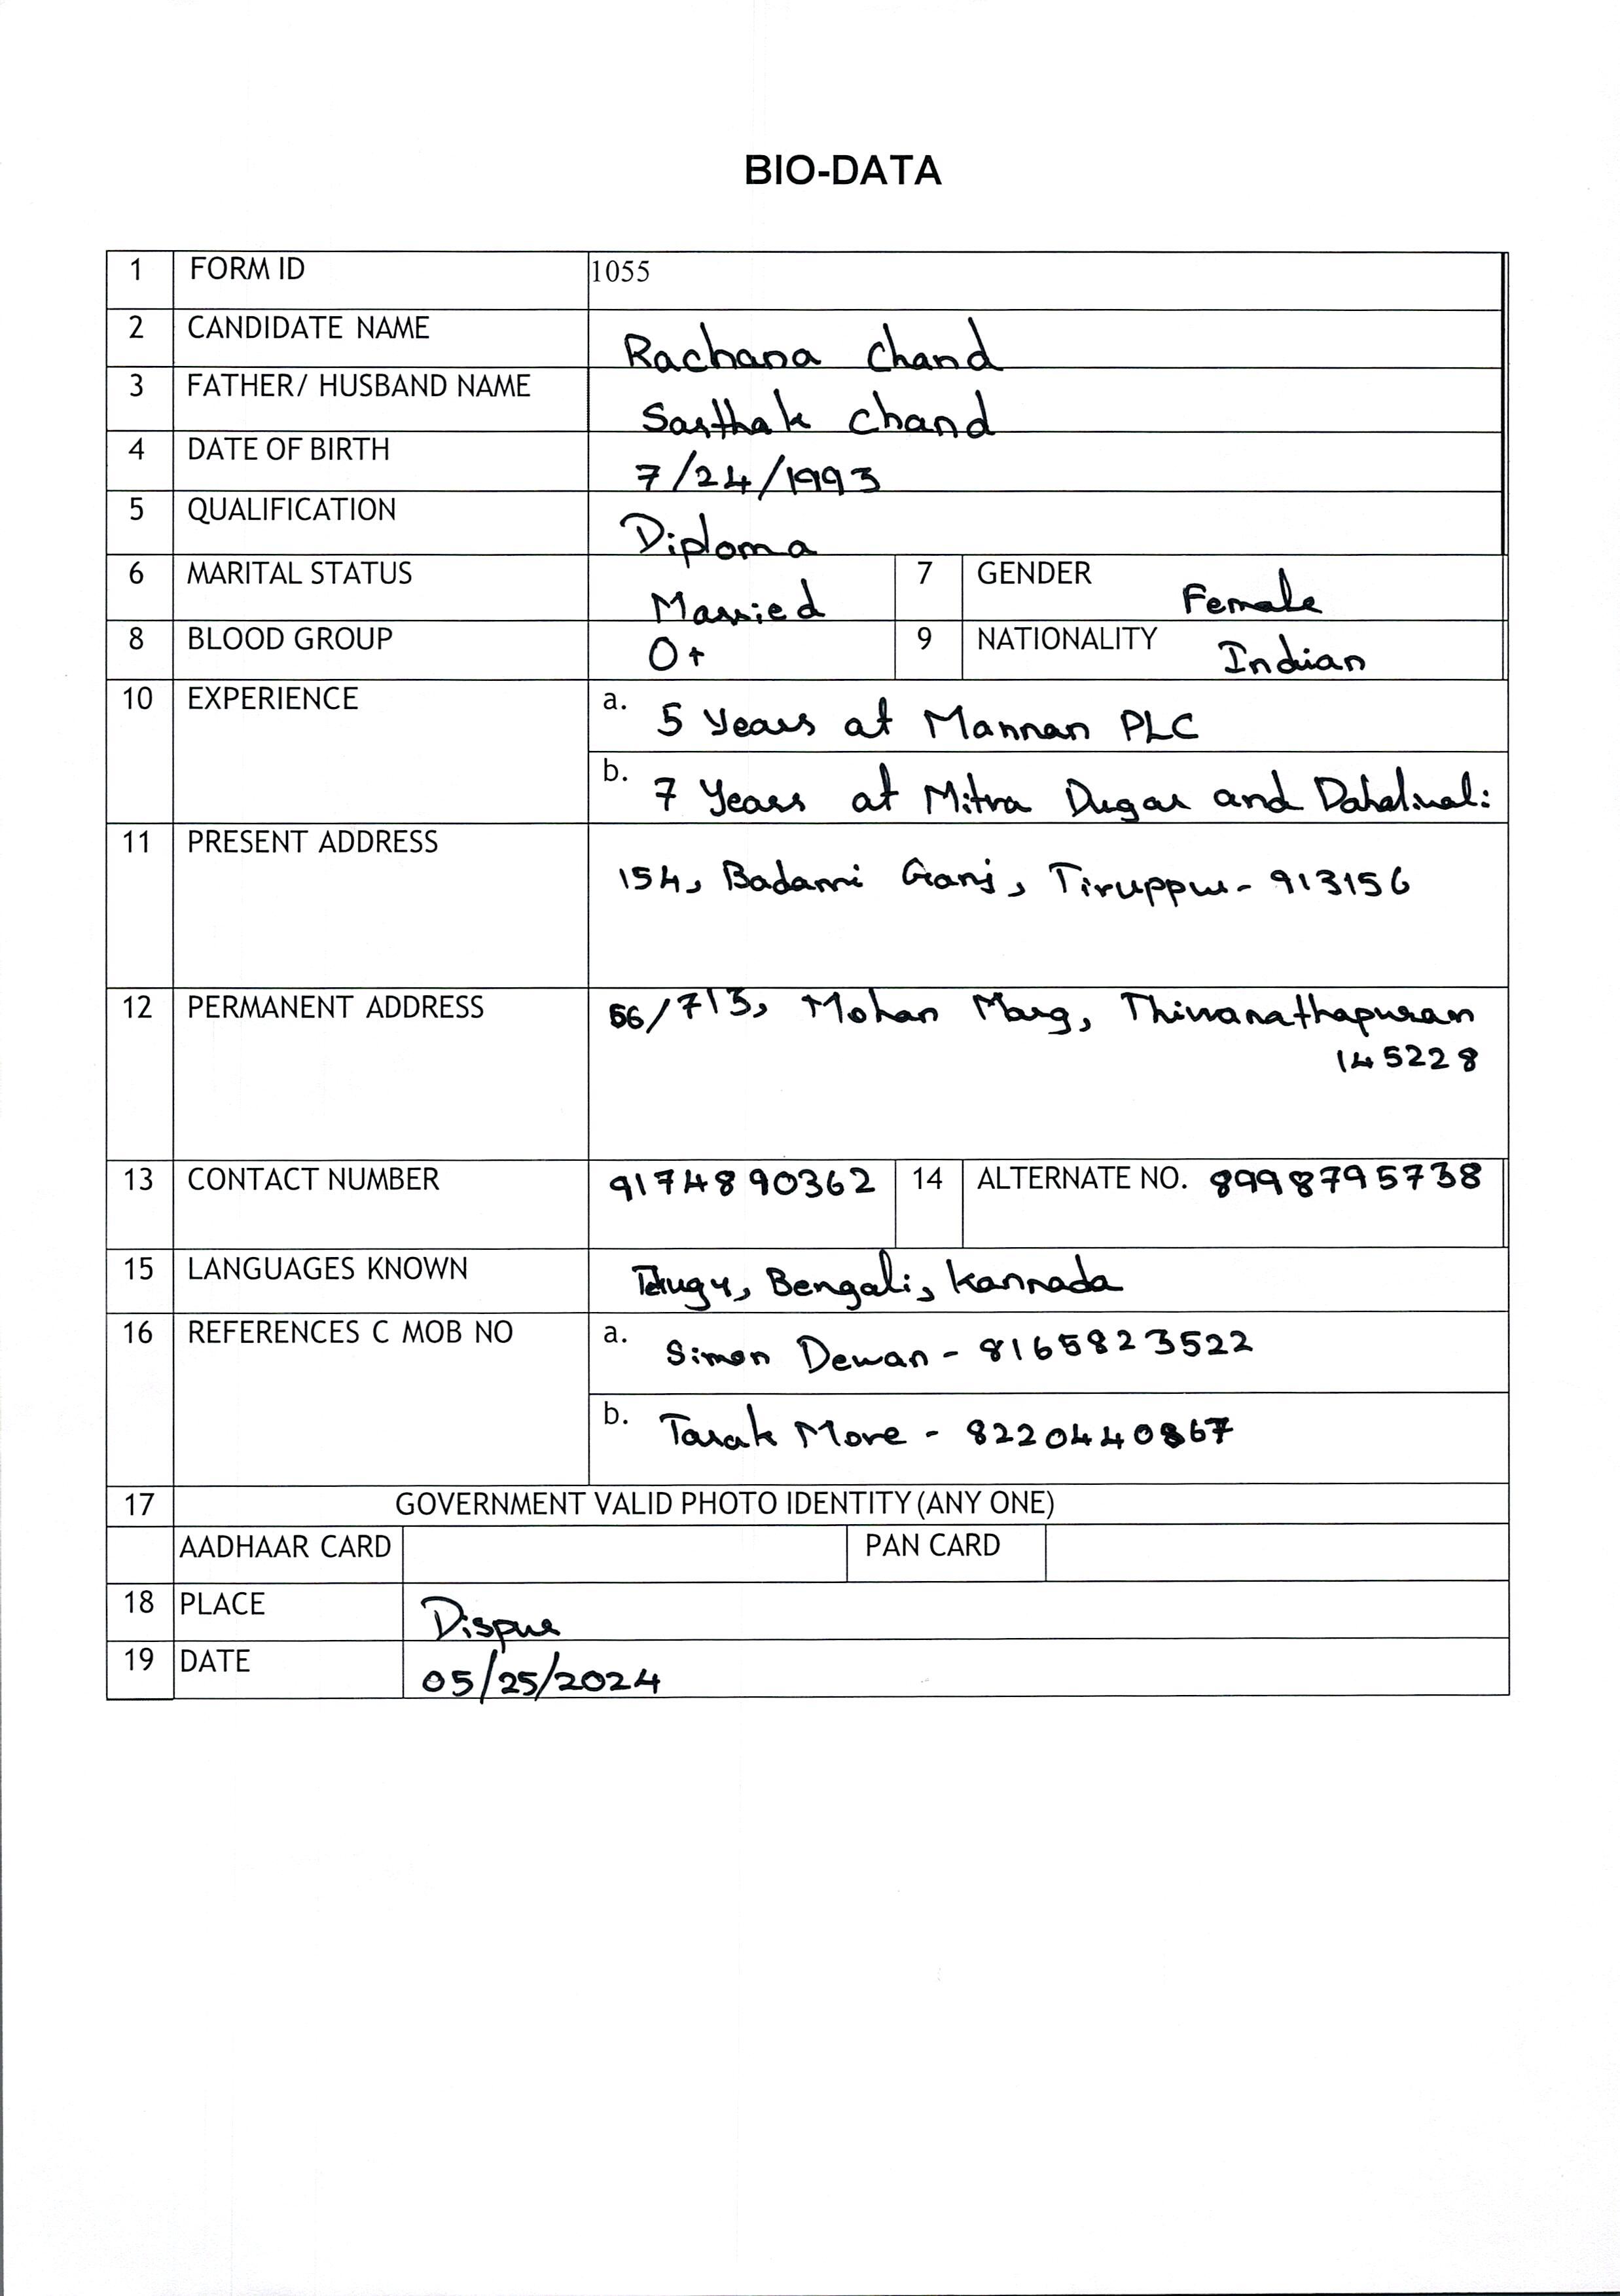 BIO-DATA
1 FORM ID 1055
2 CANDIDATE NAME Rachana Chand
3 FATHER/ HUSBAND NAME Sarthak Chand
4 DATE OF BIRTH 7/24/1993
5 QUALIFICATION Diploma
6 MARITAL STATUS Married 7 GENDER Female
8 BLOOD GROUP O+ 9 NATIONALITY Indian
10 EXPERIENCE a. 5 Years at Mannan PLC
b. 7 Years at Mitra Dugar and
11 PRESENT ADDRESS
154, Badami Ganj, Tiruppur - 913156
12 PERMANENT ADDRESS 66/713, Mohan Marg,
145228
13 CONTACT NUMBER 9174890362 14 ALTERNATE NO. 8998795738
15 LANGUAGES KNOWN Telugu, Bengali, Kannada
16 REFERENCES C MOB NO a. Simon Dewan - 8165823522
b. Tarak More - 8220440867
17 GOVERNMENT VALID PHOTO IDENTITY (ANY ONE)
AADHAAR CARD PAN CARD
18 PLACE Dispur
19 DATE 05/25/2024